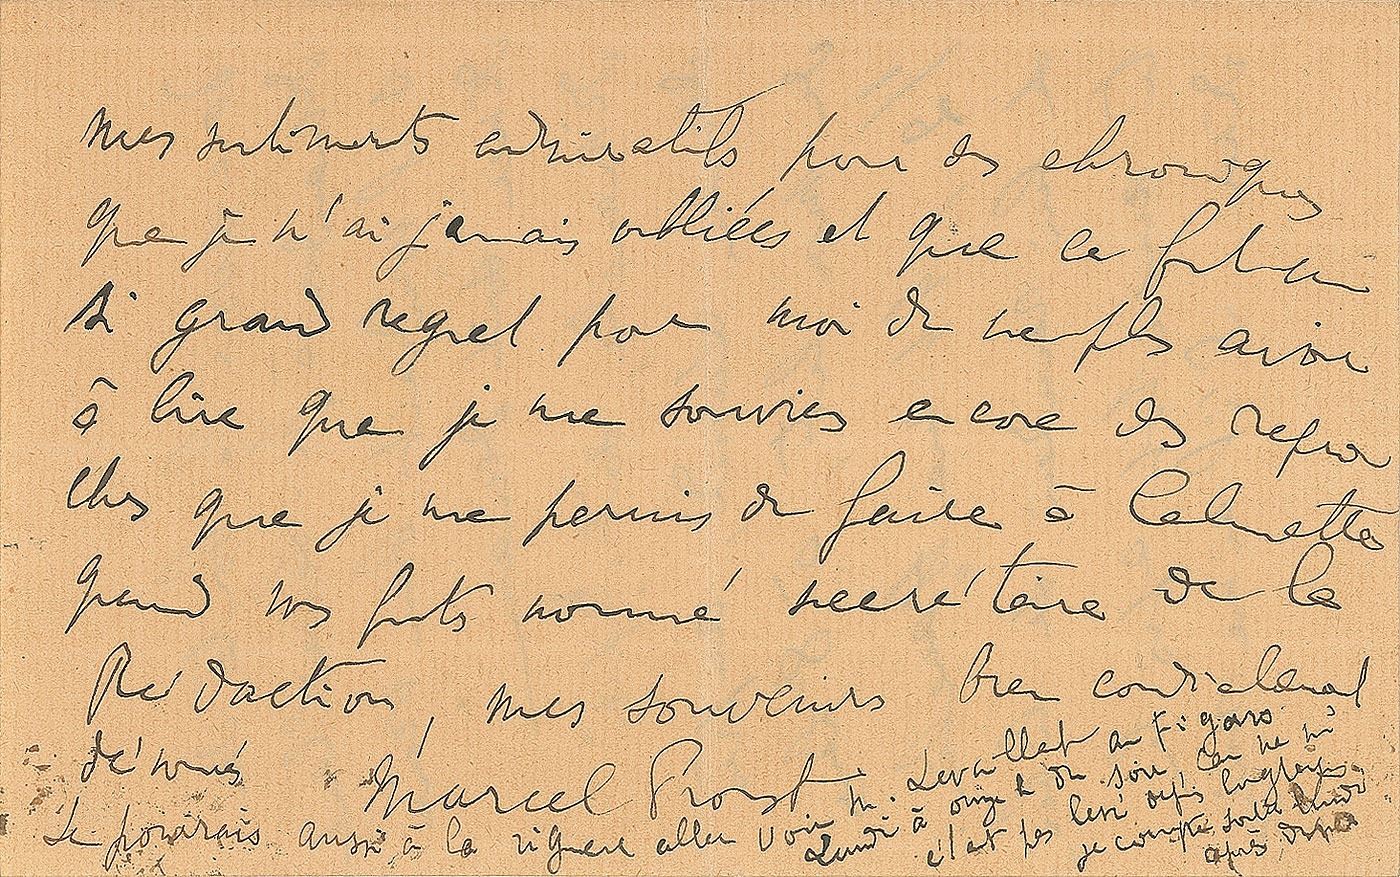 mes sentiments admiratifs pour des chroniques
que je n'ai jamais oubliées et que ce fut un
si grand regret pour moi de ne plus avoir
à lire que je me souviens encore des repro
ches que je me permis de faire à Calmette
quand vous futes nommé secrétaire de la
Rédaction, mes souvenirs bien cordialement
dévoués
Marcel Proust
Je pourrais aussi à la rigueur aller voir M. Levallet au Figaro
Lundi à onze h du soir, car ne m'
étant pas levé depuis longtemps,
je compte sortir Lundi
après